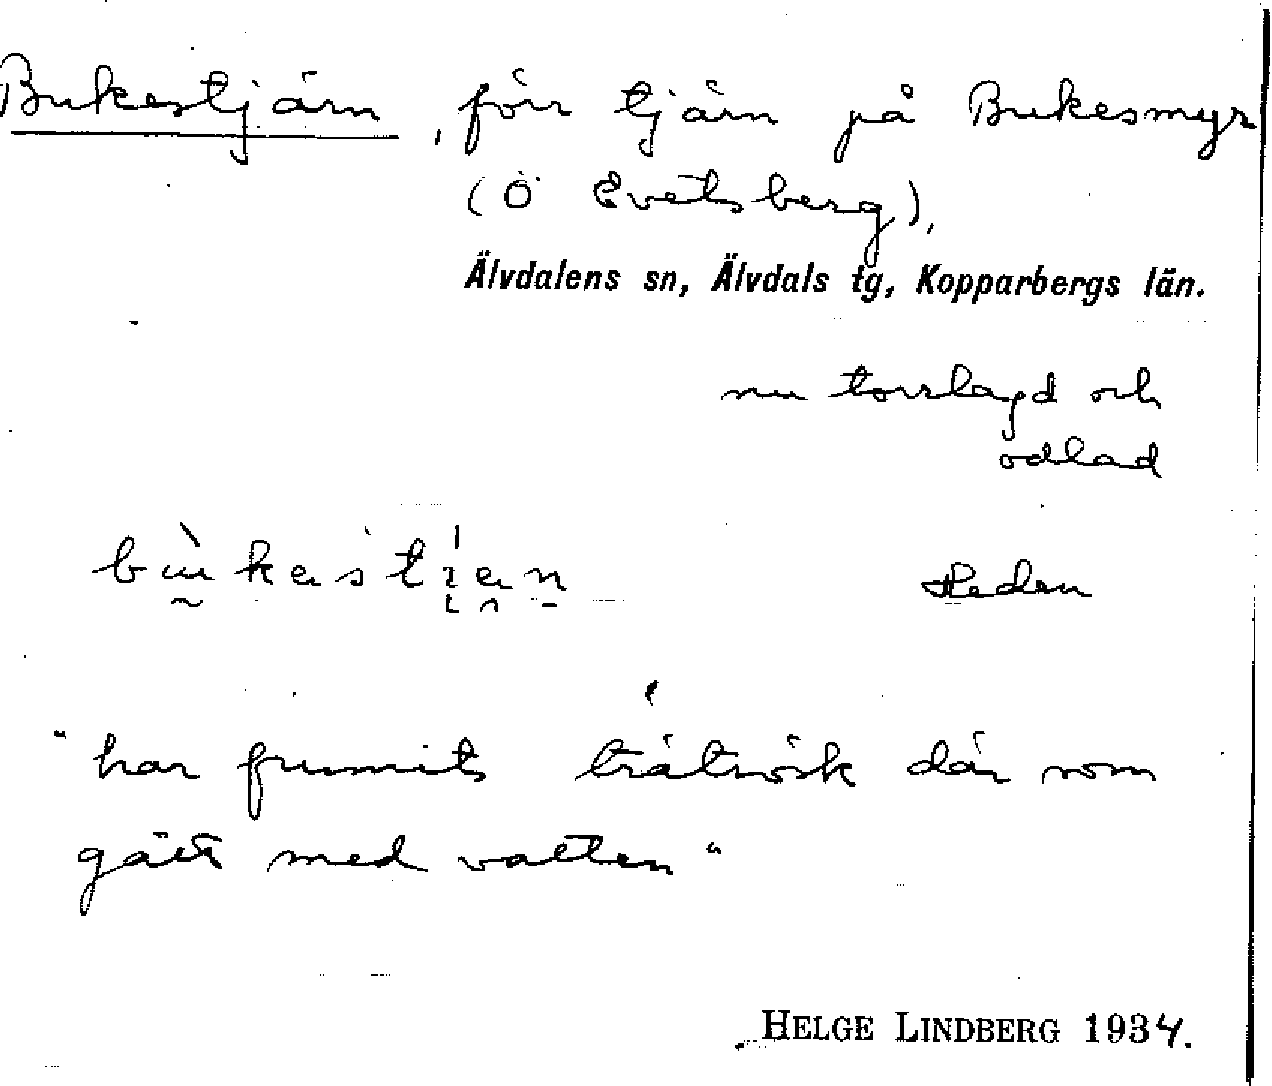 Bukestjärn, förr tjärn på Bukesmyr
(Ö Evertsberg),
Älvdalens sn, Älvdals tg, Kopparbergs län.
nu torrlagd och
odlad
Heden
"har funnits trätrösk där som
gått med vatten"
HELGE LINDBERG 1934.